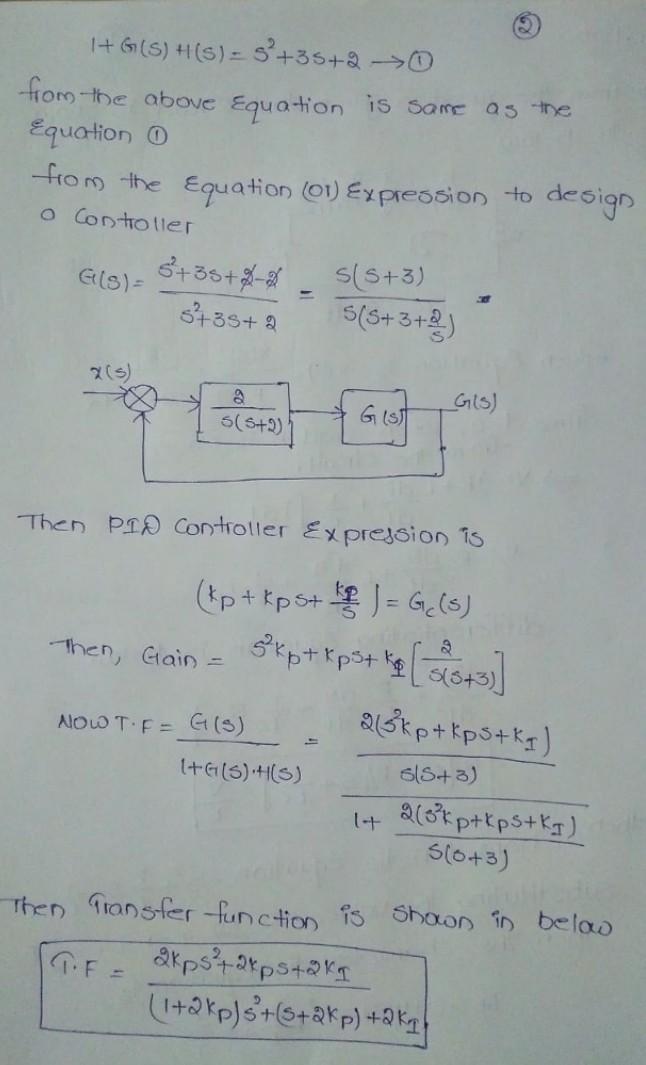 ②
1+G(S)H(S) = S²+3S+2 → ①
from the above Equation is same as the
Equation ①
from the Equation (or) Expression to design
a Controller
G(S) = (S²+3S+2-2)/(S²+3S+2) = S(S+3)/S(S+3+2/S)
x(s)
2/S(S+2)
G(S)
G(S)
Then PID Controller Expression is
(Kp + Kp S + KI/S) = Gc(S)
Then, Gain = S²Kp + KpS + KI [2/S(S+3)]
NOW T.F = G(S)/(1+G(S)·H(S)) = (2(S²Kp+KpS+KI)/S(S+3))/(1+ 2(S²Kp+KpS+KI)/S(S+3))
Then Transfer function is shown in below
T.F = (2KpS²+2KpS+2KI)/((1+2Kp)S²+(S+2Kp)+2KI)